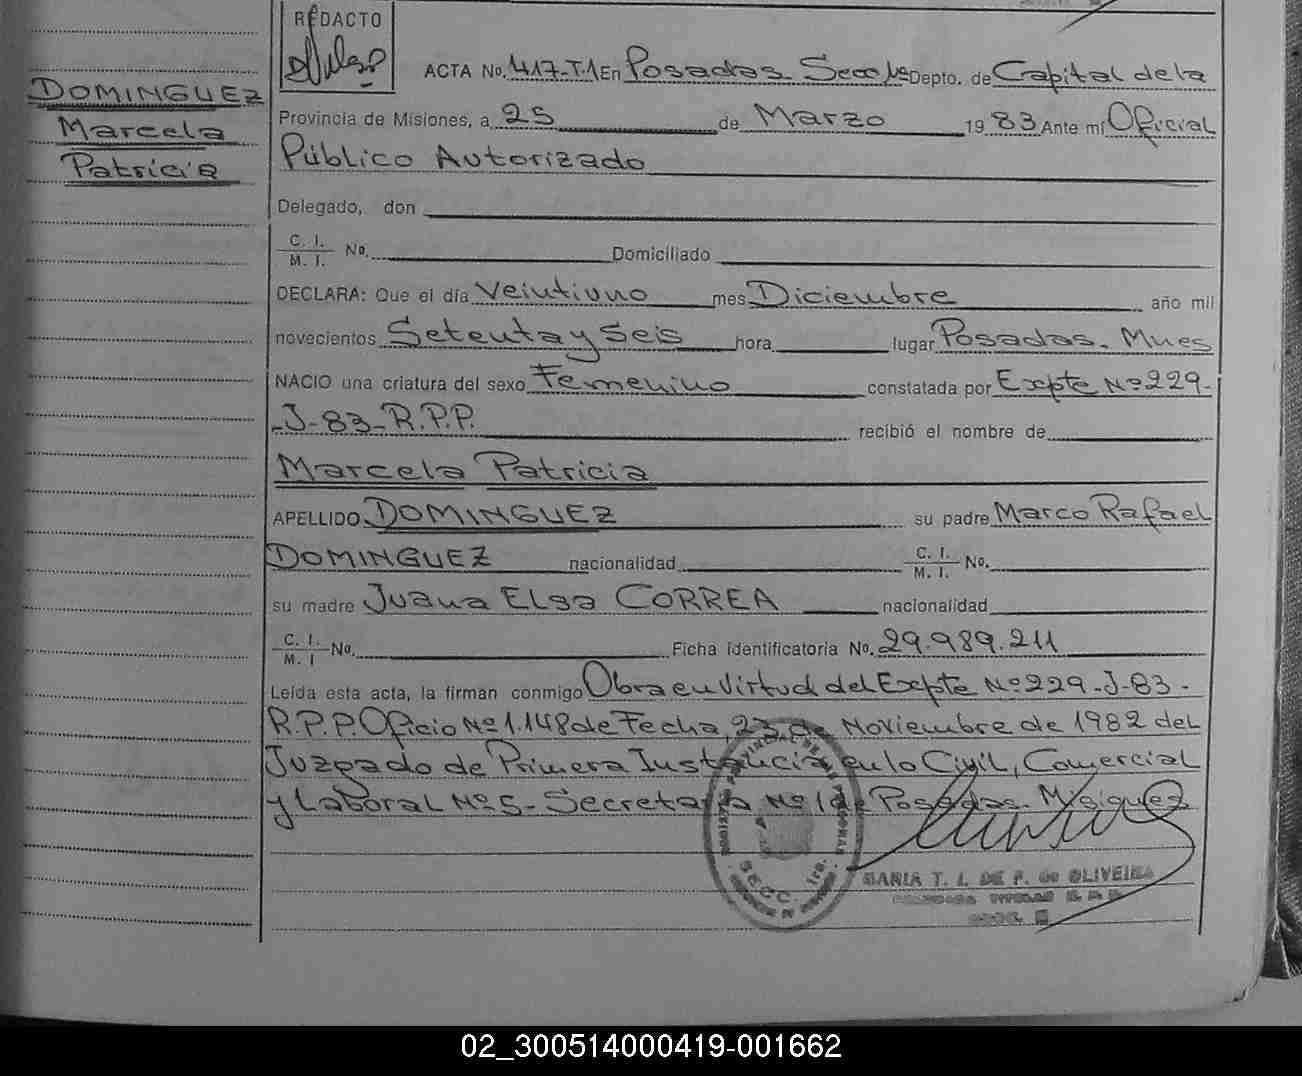 REDACTO
ACTA No. 417-T.1 En Posadas Secc 1a Depto. de Capital de la
DOMINGUEZ
Marcela
Patricia
Provincia de Misiones, a 25 de Marzo 1983 Ante mí Oficial
Público Autorizado
Delegado, don
C. I.
M. I. No. Domiciliado
DECLARA: Que el día Veintiuno mes Diciembre año mil
novecientos Setenta y Seis hora lugar Posadas. Mnes
NACIO una criatura del sexo Femenino constatada por Expte Nº 229-
-J-83-R.P.P. recibió el nombre de
Marcela Patricia
APELLIDO DOMINGUEZ su padre Marco Rafael
DOMINGUEZ nacionalidad C. I.
M. I. No.
su madre Juana Elsa CORREA nacionalidad
C. I.
M. I No. Ficha Identificatoria No. 29.989.211
Leída esta acta, la firman conmigo Obra en Virtud del Expte Nº 229-J-83-
R.P.P. Oficio Nº 1.148 de Fecha, 23 de Noviembre de 1982 del
Juzgado de Primera Instancia en lo Civil, Comercial
y Laboral Nº 5- Secretaria Nº 1 de Posadas. Misiones
SECC. 1ra.
T. I. DE F. de OLIVEIRA
02_300514000419-001662